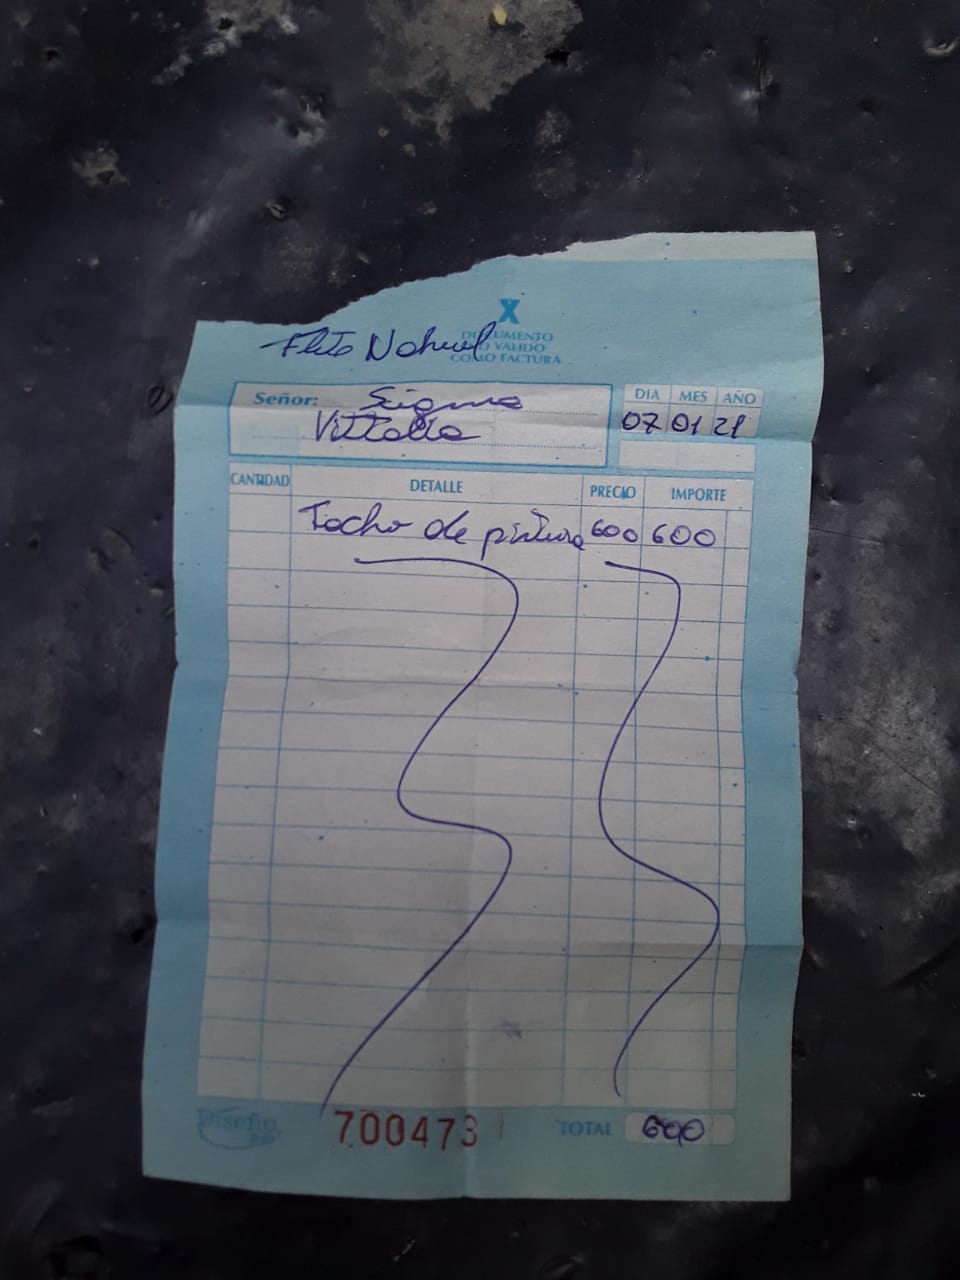 X
DOCUMENTO
NO VALIDO
COMO FACTURA
Flete Nahuel
Señor: Sigma
Vittolla
DIA MES AÑO
07 01 21
CANTIDAD DETALLE PRECIO IMPORTE
Tacho de pintura 600 600
Diseño
700473
TOTAL 600